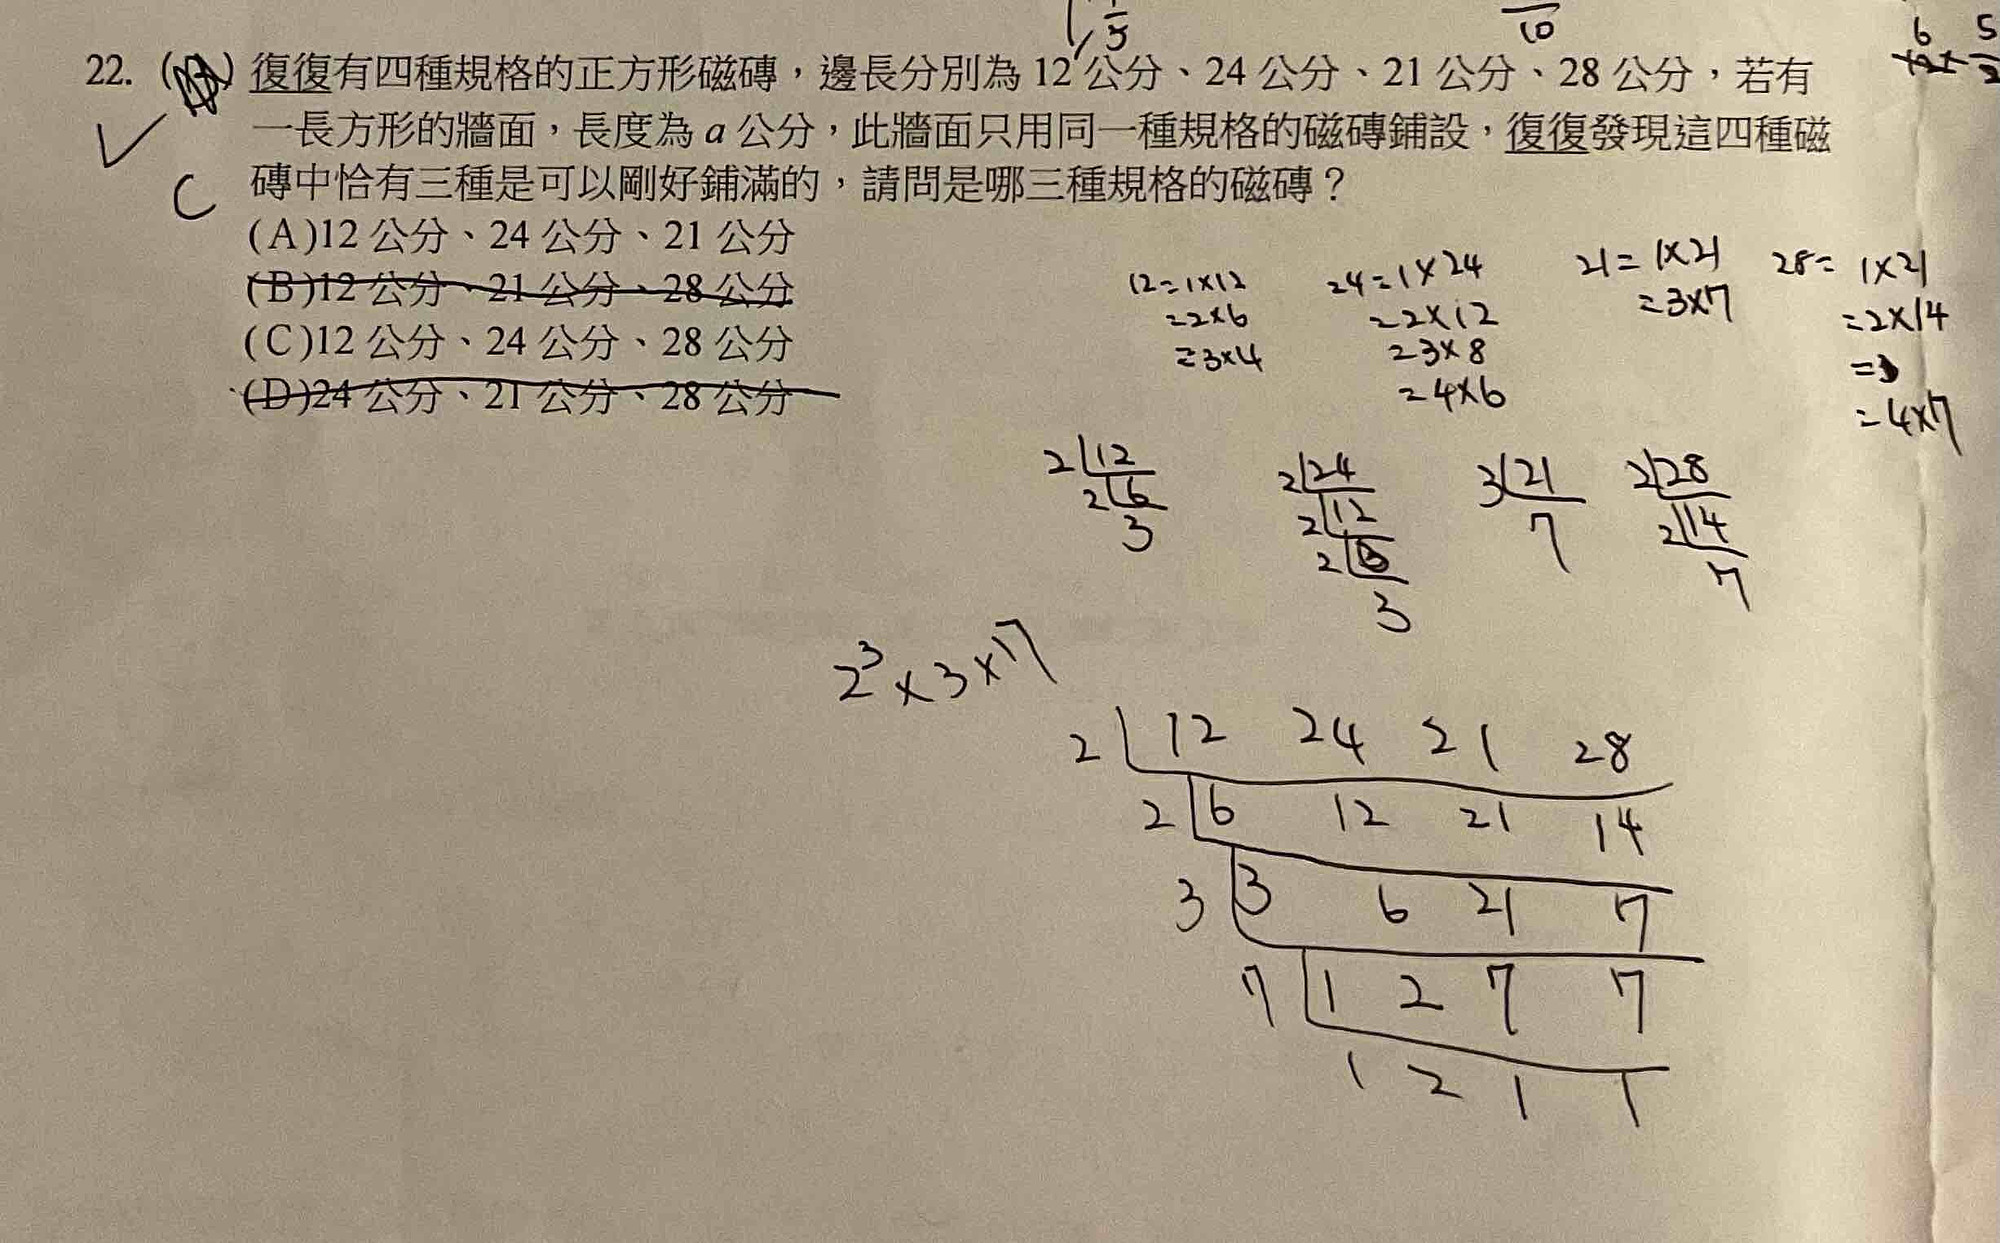 22. ( ) 復復有四種規格的正方形磁磚，邊長分別為 12 公分、24 公分、21 公分、28 公分，若有
一長方形的牆面，長度為 a 公分，此牆面只用同一種規格的磁磚鋪設，復復發現這四種磁
磚中恰有三種是可以剛好鋪滿的，請問是哪三種規格的磁磚？
C
(A)12 公分、24 公分、21 公分
(B)12 公分、21 公分、28 公分
(C)12 公分、24 公分、28 公分
(D)24 公分、21 公分、28 公分
12=1×12 24=1×24 21=1×21 28=1×21
=2×6 =2×12 =3×7 =2×14
=3×4 =3×8 =3
=4×6 =4×7
2 12 2 24 3 21 2 28
2 6 2 12 7 2 14
3 2 6 7
3
2³×3×7
2 12 24 21 28
2 6 12 21 14
3 3 6 21 7
7 1 2 7 7
1 2 1 1
1/5
10
6 5
2